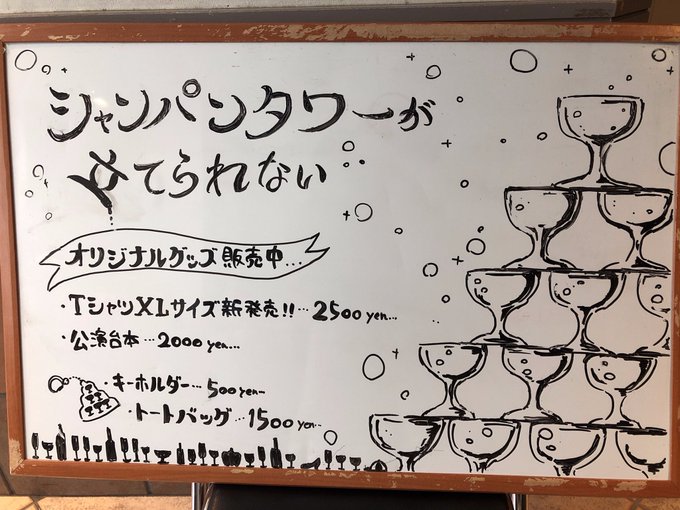 シャンパンタワーが
立てられない
オリジナルグッズ販売中...
・TシャツXLサイズ新発売!!…2500yen...
・公演台本…2000yen...
・キーホルダー…500yen...
・トートバッグ…1500yen...